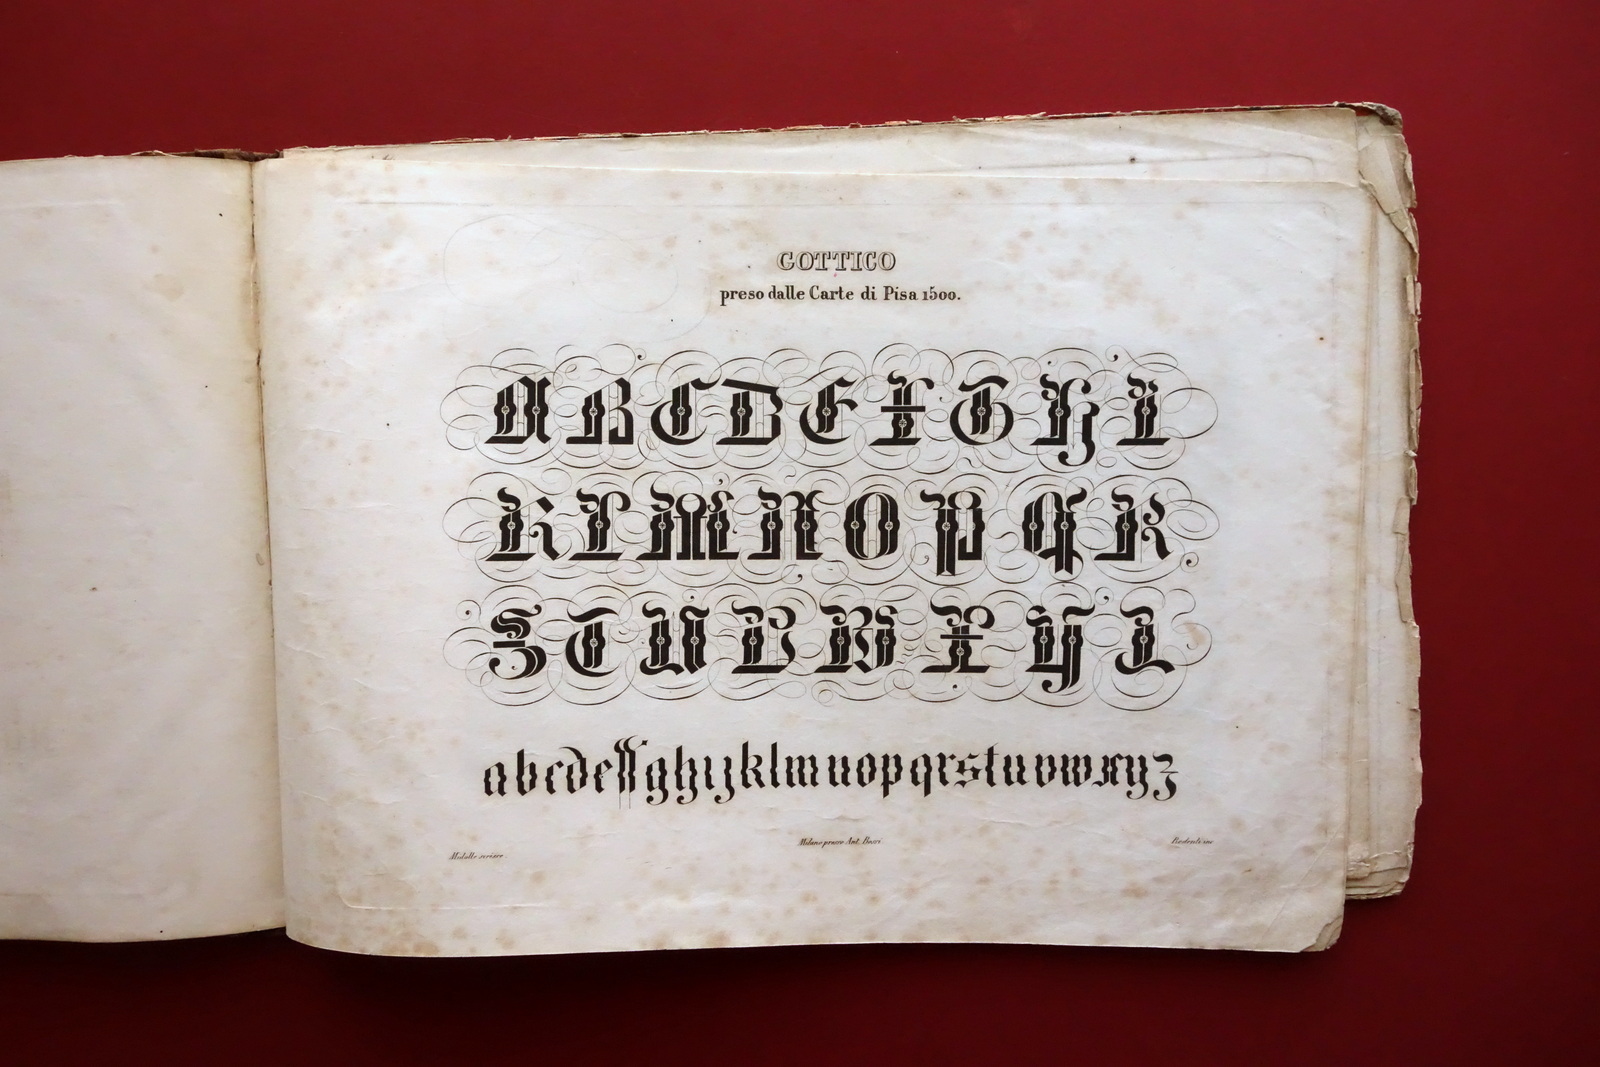 GOTTICO
preso dalle Carte di Pisa 1500.
A B C D E F G H I
K L M N O P Q R
S T U V W X Y Z
abcdeffghijklmnopqrstuvwxyz
scrisse
Milano presso Ant. Bossi
inc